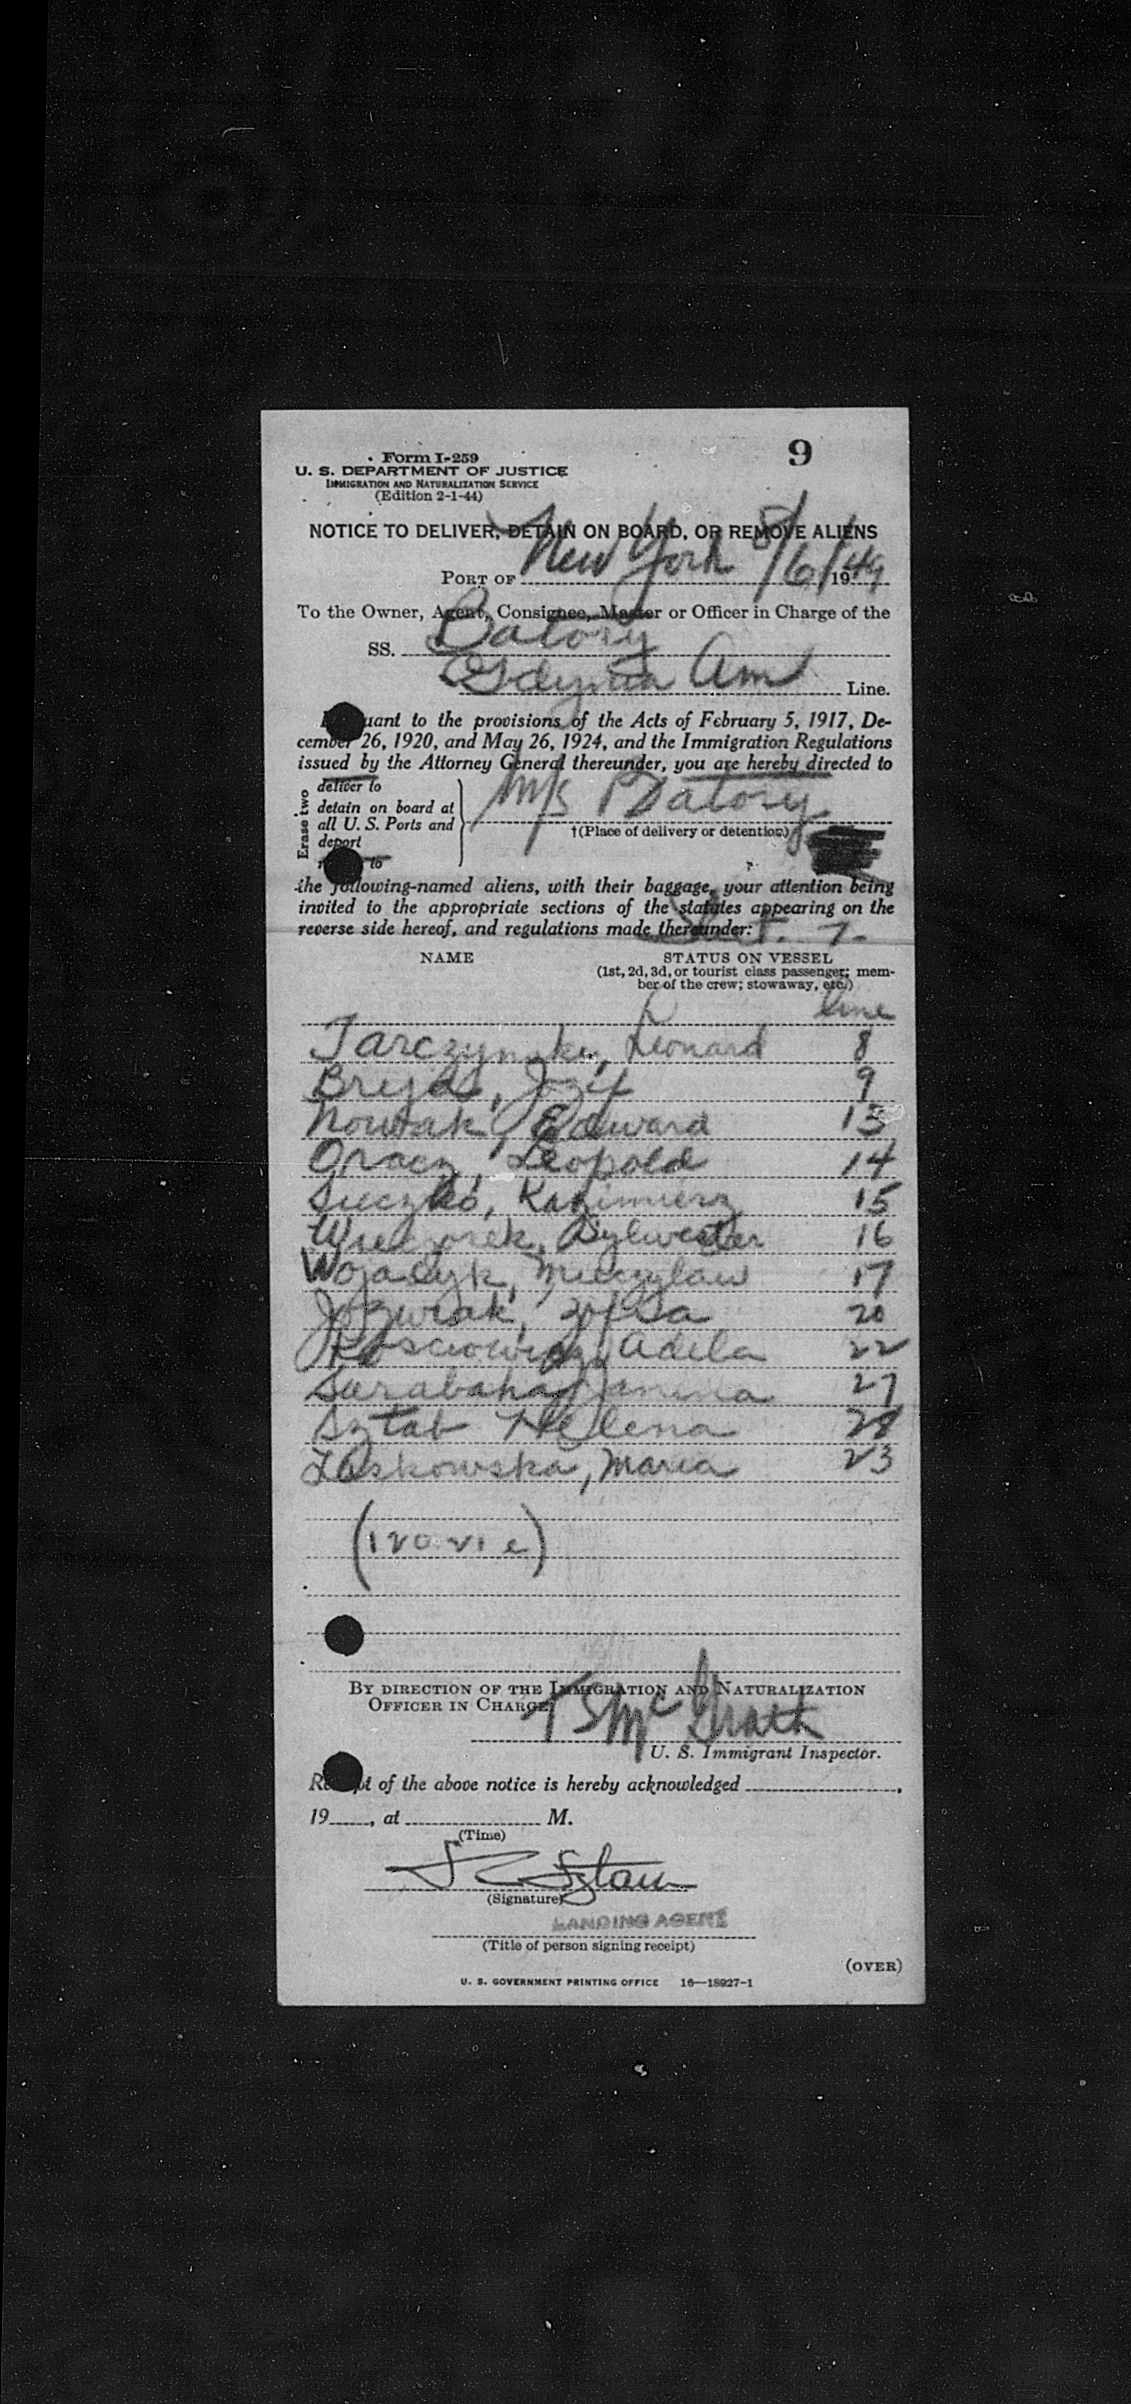 9
Form I-259
U. S. DEPARTMENT OF JUSTICE
IMMIGRATION AND NATURALIZATION SERVICE
(Edition 2-1-44)
NOTICE TO DELIVER, DETAIN ON BOARD, OR REMOVE ALIENS
PORT OF New York 8/6/1949
To the Owner, Agent, Consignee, Master or Officer in Charge of the
SS. Batory
Gdynia Am Line.
uant to the provisions of the Acts of February 5, 1917, De-
cember 26, 1920, and May 26, 1924, and the Immigration Regulations
issued by the Attorney General thereunder, you are hereby directed to
Erase two
deliver to
detain on board at
all U. S. Ports and
deport
to
M/S Batory
†(Place of delivery or detention)
the following-named aliens, with their baggage, your attention being
invited to the appropriate sections of the statutes appearing on the
reverse side hereof, and regulations made thereunder:
Sheet. 7-
NAME STATUS ON VESSEL
(1st, 2d, 3d, or tourist class passenger; mem-
ber of the crew; stowaway, etc.)
line
Tarczynski, Leonard 8
Bryja, Jozef 9
Nowak, Edward 13
Oracz, Leopold 14
Kazimierz 15
Wieczorek, Sylwester 16
Wojacyk, Mieczylaw 17
Jozwiak, Zofia 20
Adela 22
Janina 27
Sztab Helena 28
Laskowska, Maria 23
BY DIRECTION OF THE IMMIGRATION AND NATURALIZATION
OFFICER IN CHARGE
TSMcGrath
U. S. Immigrant Inspector.
Receipt of the above notice is hereby acknowledged ,
19 , at M.
(Time)
(Signature)
LANDING AGENT
(Title of person signing receipt)
(OVER)
U. S. GOVERNMENT PRINTING OFFICE 16—18927-1